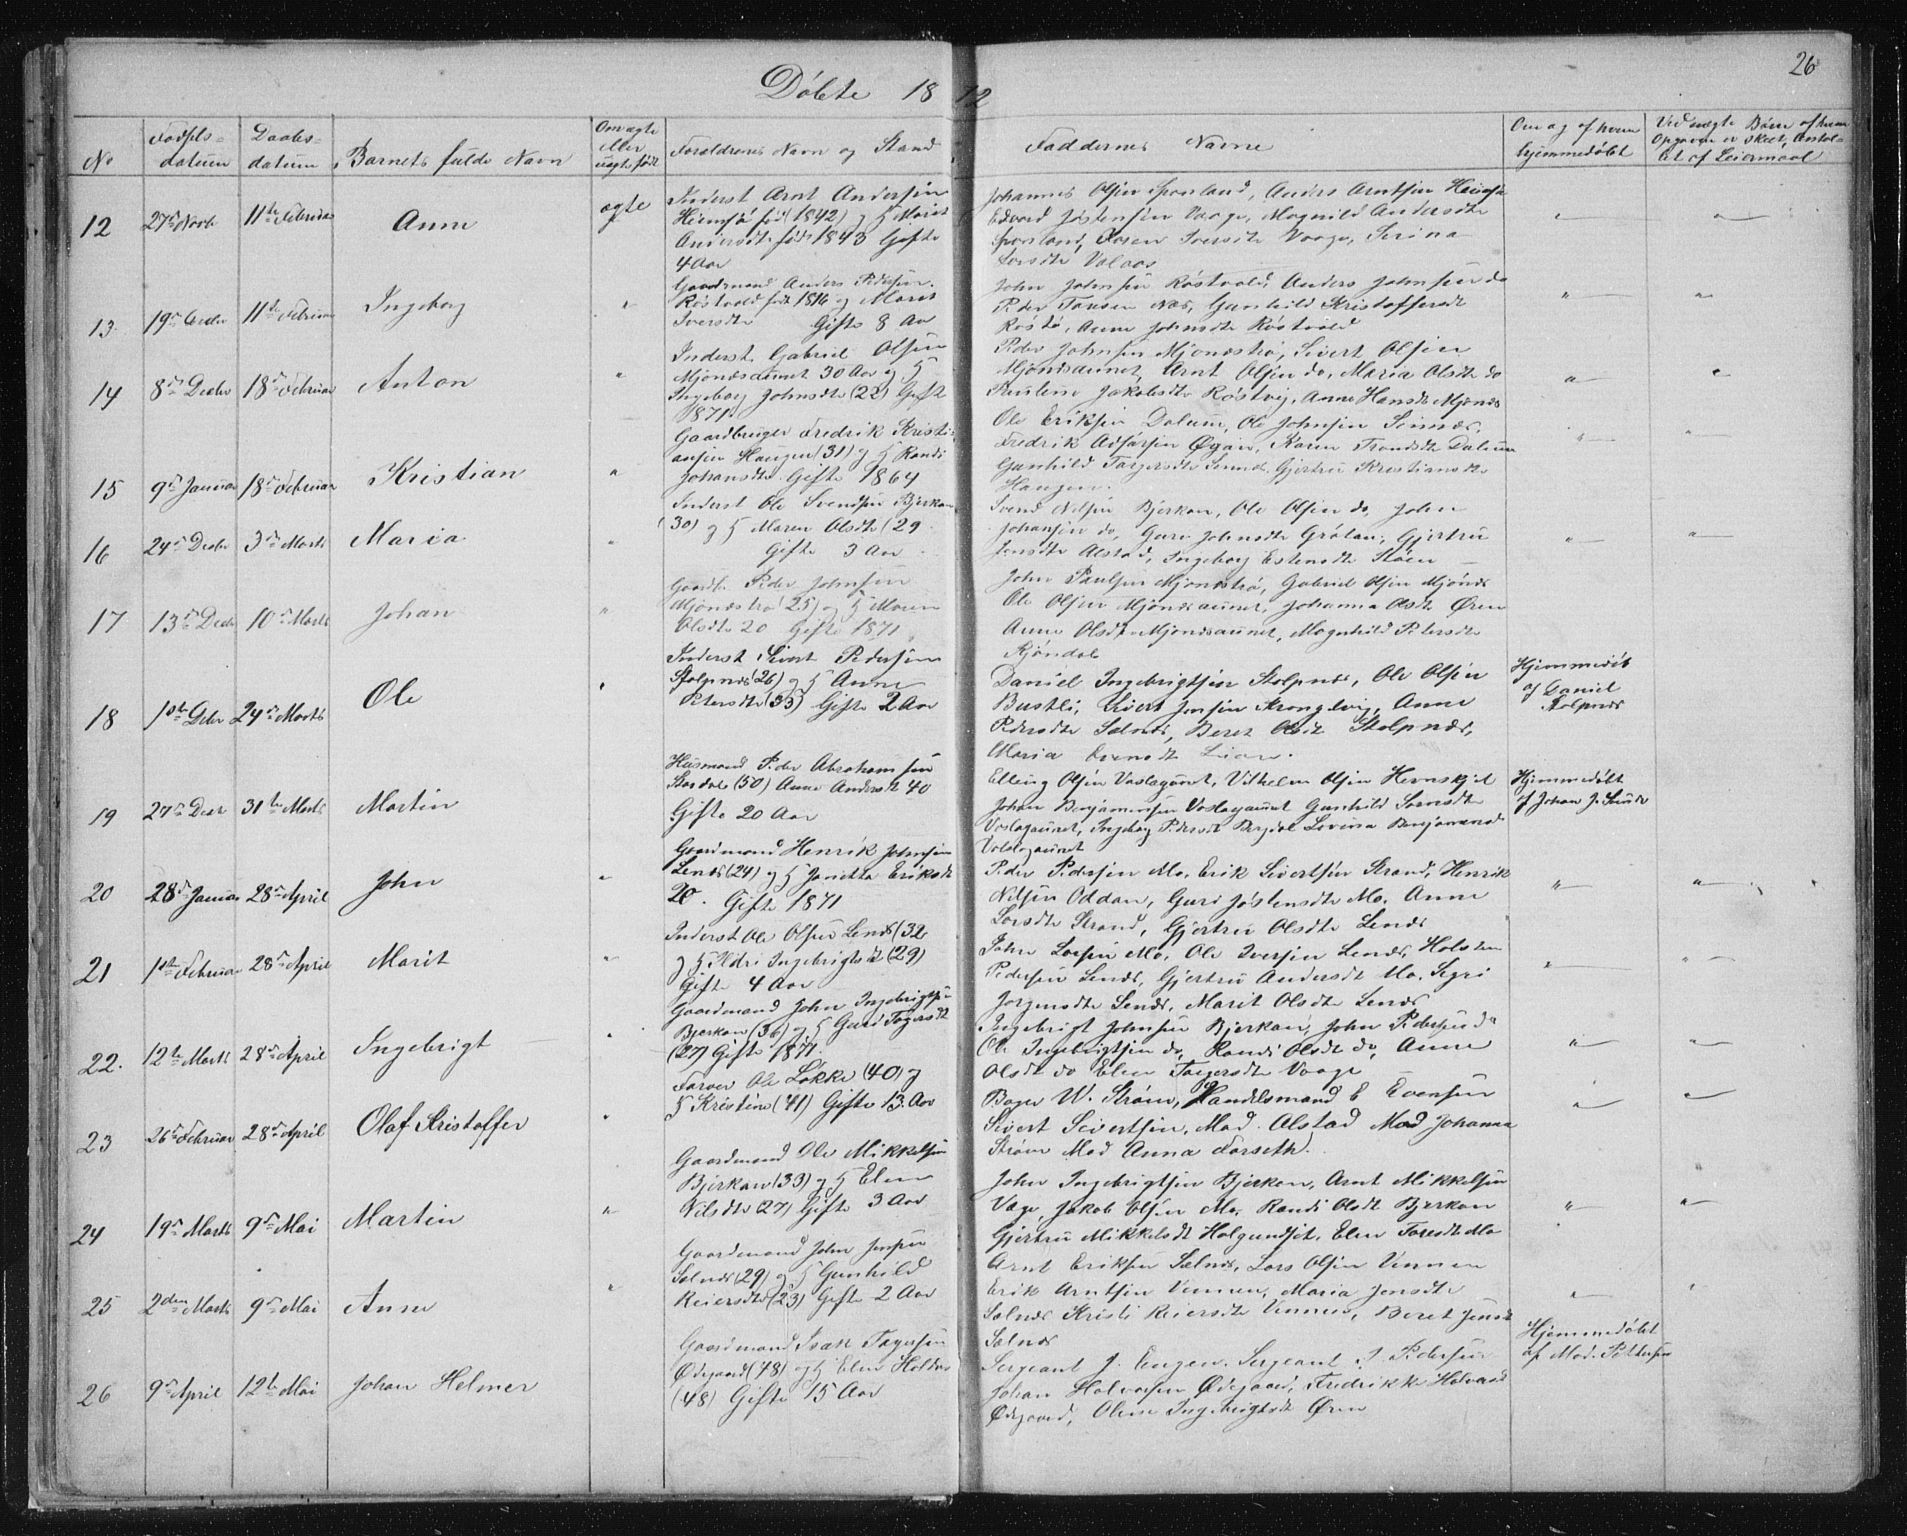 26
Døbte 1872
No
Fødsels-
datum
Daabs-
datum
Barnets fulde Navn
Om ægte
eller
uægte født
Forældrenes Navn og Stand
Faddernes Navne
Om og af hvem
hjemmedøbt
Ved uægte Børn af hvem
Opgaven er skeet, Antal-
let af Leiermaal
12 27de Novb 11te Februar Anne ægte
Inderst Arnt Andersen
født (1842) og H Marit
Andersdt født 1843 Gifte
4 Aar
Johannes Olsen Sponland, Anders Arntsen
Edvard Jostensen Vaage, Magnhild Andersdt
Sponland, Iversdt Vaage, Serina
Larsdt
13. 19de Decbr 11te Februar Ingeborg "
Gaardmand Anders Pedersen
Røstvold født 1816 og Marit
Iversdt Gifte 8 Aar
John Johnsen Røstvold, Anders Johnsen do
Peder Næs, Gunhild Kristoffersdt
Røstø, Anne Johnsdt Røstvold
14 8de Decbr 18de Februar Anton "
Inderst Gabriel Olsen
Mjøndsaunet 30 Aar og H
Ingeborg Johnsdt (22) Gifte
1871
Peder Johnsen Mjøndstrø, Sivert Olsen
Mjøndsaunet, Arnt Olsen do, Maria Olsdt do
Jakobsdt Røstvig, Anne Hansdt Mjønds
15 9de Januar 18de Februar Kristian "
Gaardbruger Fredrik Kristi-
ansen Haugen (31) og H Randi
Johansdt Gifte 1864
Ole Eriksen Dalum, Ole Johnsen
Fredrik Øyan, Karen Trondsdt Dalum
Gunhild Gjertru Kristiansdt
Haugen
16 24de Decbr 3de Marts Maria "
Inderst Ole Svendsen Bjerkan
(30) og H Maren Olsdt (29
Gifte 3 Aar
Svend Nilsen Bjerkan, Ole Olsen do, John
Johansen do, Guru Johnsdt Grøtan, Gjertru
Jensdt Alstad, Ingeborg Estensdt Støen
17 13de Decb 10de Marts Johan "
Gaardbr Peder Johnsen
Mjøndstrø (25) og H Maren
Olsdt 20 Gifte 1871
John Paulsen Mjøndstrø, Gabriel Olsen Mjønds
Ole Olsen Mjøndsaunet, Johanna Olsdt Øren
Anne Olsdt Mjøndsaunet, Magnhild Petersdt
18 1ste Debr 24de Marts Ole "
Inderst Sivert Pedersen
Stolpnæs (26) og H Anne
Petersdt (33) Gifte 2 Aar
Daniel Ingebrigtsen Stolpnæs, Ole Olsen
Bustli, Sivert Jensen Krongelvig, Anne
Pedersdt Selnæs, Beret Olsdt Stolpnæs,
Maria
Hjemmedøb
af Daniel
Stolpnæs
19 27de Decbr 31te Marts Martin
Husmand Peder Abrahamsen
Stordal (50) Anne Andersdt 40
Gifte 20 Aar
Elling Olsen Vaslagaunet, Vilhelm Olsen Hemskjel
Johan Benjaminsen Vaslagaunet Gunhild
Vaslagaunet, Ingeborg Pedersdt Bergdal Lovina Benjaminsd
Vaslagaunet
Hjemmedøbt
af Johan J.
20 28de Januar 28de April John "
Gaardmand Henrik Johnsen
Lends (24) og H Jonetta Eriksdt
20. Gifte 1871
Peder Pedersen Mo, Erik Sivertsen Strand, Henrik
Nilsen Oddan, Guri Jøstensdt Mo, Anne
Larsdt Strand, Gjertru Olsdt Lends
21 1ste Februar 28de April Marit "
Inderst Ole Olsen Lends (32
og H Ingebrigtsdt (29)
Gifte 4 Aar
John Larsen Mo, Ole Iversen Lends, Halsten
Pedersen Lends, Gjertru Andersdt Mo, Segri
Jørgensdt Lends, Marit Olsdt Lends
22. 12te Marts 28de April Ingebrigt "
Gaardmand John Ingebrigtsen
Bjerkan (36) og H Guri
(27) Gifte 1871.
Ingebrigt Johnsen Bjerkan, John Pedersen do
Ole Ingebrigtsen do, Randi Olsdt do, Anne
Olsdt do Elen Vaage
23 26de Februar 28de April Olaf Kristoffer "
Farver Ole Løkke (40) og
H Kristine (41) Gifte 13 Aar
Bager W. Strøm, Handelsmand E Evensen
Sivert Sivertsen, Mad. Alstad Mad Johanna
Strøm Mad Anna Farseth.
24 19de Marts 9de Mai Martin "
Gaardmand Ole Mikkelsen
Bjerkan (33) og H Elen
Nilsdt (27) Gifte 3 Aar
John Ingebrigtsen Bjerkan, Arnt Mikkelsen
Vage, Jakob Olsen Mo, Randi Olsdt Bjerkan
Gjertru Mikkelsdt Elen Mo
25 2den Marts 9de Mai Anne "
Gaardmand John Jensen
Selnæs (29) og H Gunhild
Reiersdt (23) Gifte 2 Aar
Arnt Eriksen Selnæs, Lars Olsen Vennen
Erik Arntsen Vennen, Maria Jensdt
Selnæs Kristi Reiersdt Vennen, Beret Jensdt
Selnæs
26 9de April 12te Mai Johan Helmer
Gaardmand Isak
Ødegaard (48) og H Elen
(48) Gifte 15 Aar
Sergeant J. Engen, Sergeant J Pedersen
Johan Halvorsen Ødegaard, Fredrikke Halvorsd
Ødegaard, Oline Ingebrigtsdt Øren
Hjemmedøbt
af Mad. Pettersen